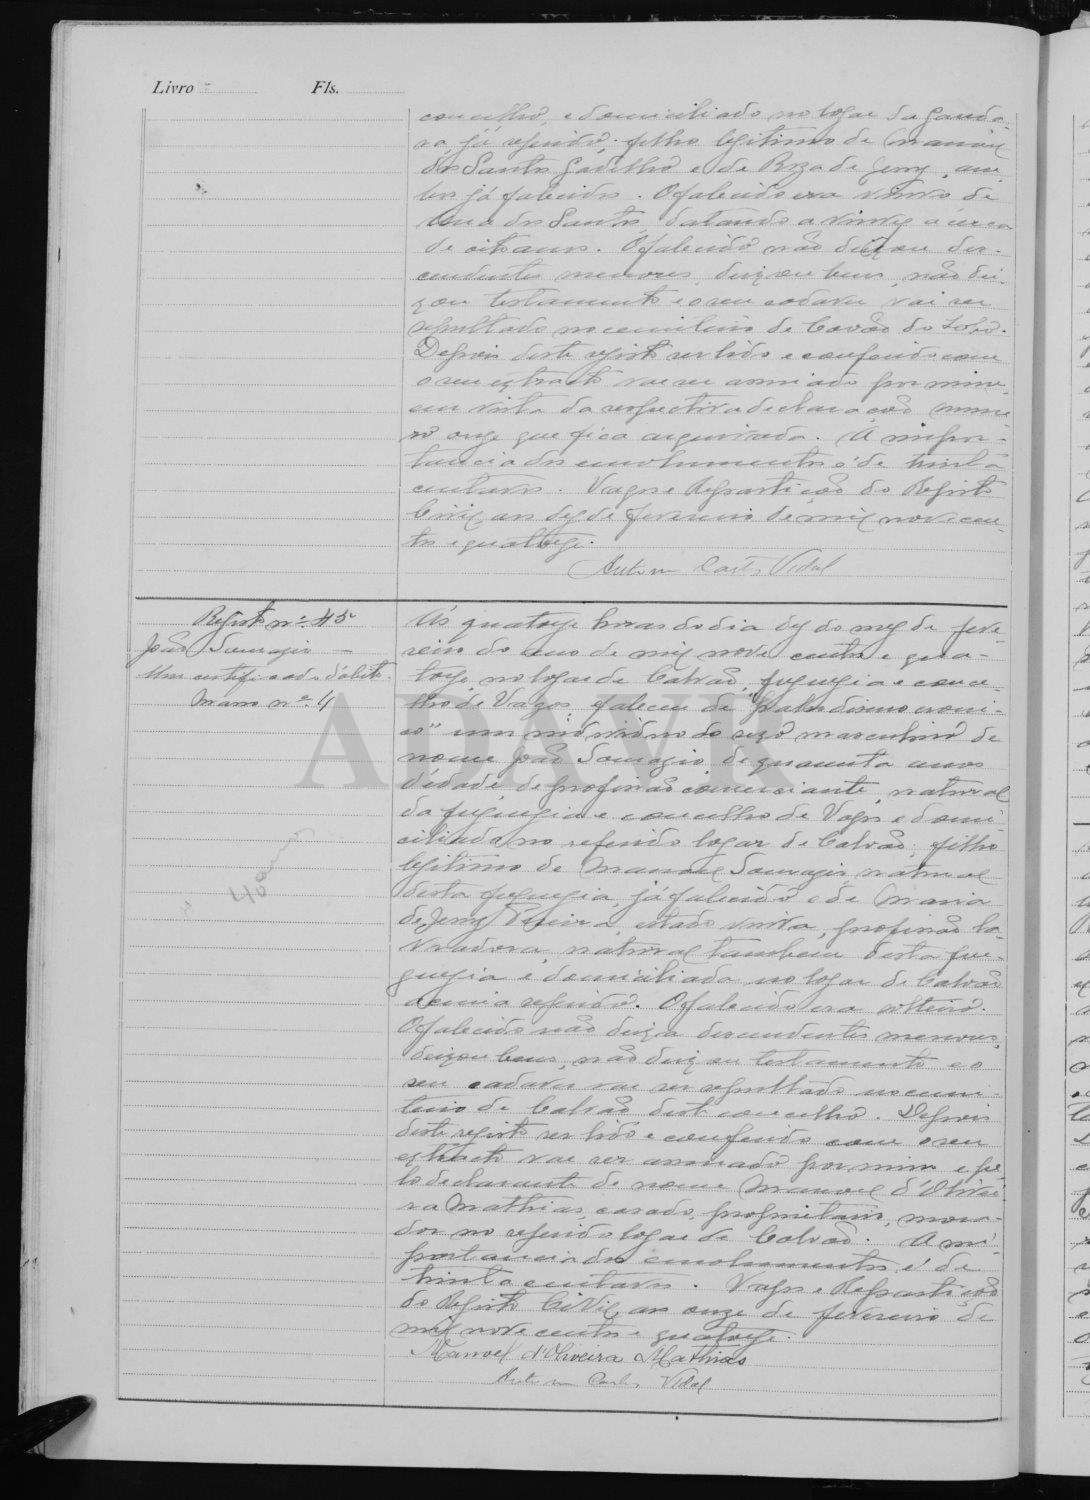 Livro Fls.
concelho, e domiciliado no logar da Ganda-
ra, já referido; filho legitimo de Manoel
dos Santos Gadelho e de Roza de Jesus, am-
bos já falecidos. O falecido era viuvo de
dos Santos, datando a viuvez a cerca
de oito anos. O falecido não deixou des-
cendentes menores, deixou bens, não dei-
xou testamento e o seu cadaver vai ser
sepultado no cemiterio de Covão do Lobo.
Depois deste registo ser lido e conferido com
o seu extracto vae ser assinado por mim
em vista da respectiva declaração nume-
ro onze que fica arquivada. A impor-
tancia dos emolumentos é de trinta
centavos. Vagos e Repartição do Registo
Civil aos dez de fevereiro de mil novecen-
tos e quatorze.
Carlos Vidal
Registo nº 45
João Domingos
Um certificado d'obito
Maço nº 4
40 anos
Ás quatorze horas do dia dez do mez de feve-
reiro do ano de mil nove centos e qua-
torze, no logar de Calvão, freguezia e conce-
lho de Vagos, faleceu de
um individuo do sexo masculino de
nome João de quarenta anos
d'idade de profissão comerciante, natural
da freguezia e concelho de Vagos e domi-
ciliado no referido logar de Calvão, filho
legitimo de Manoel natural
desta freguezia, já falecido e de Maria
de Jesus estado viuva, profissão la-
vradora, natural tambem desta fre-
guezia e domiciliada no logar de Calvão
acima referido. O falecido era solteiro.
O falecido não deixa descendentes menores,
deixou bens, não deixou testamento e o
seu cadaver vae ser sepultado no cemi-
terio de Calvão deste concelho. Depois
deste registo ser lido e conferido com o seu
extracto vae ser assinado por mim e pe-
lo declarante de nome Manoel d'Olivei-
ra Mathias, casado, proprietario, mora-
dor no referido logar de Calvão. A im-
portancia dos emolumentos é de
trinta centavos. Vagos e Repartição
do Registo Civil aos onze de fevereiro de
mil nove centos e quatorze.
Manoel d'Oliveira Mathias
Carlos Vidal
ADAVR